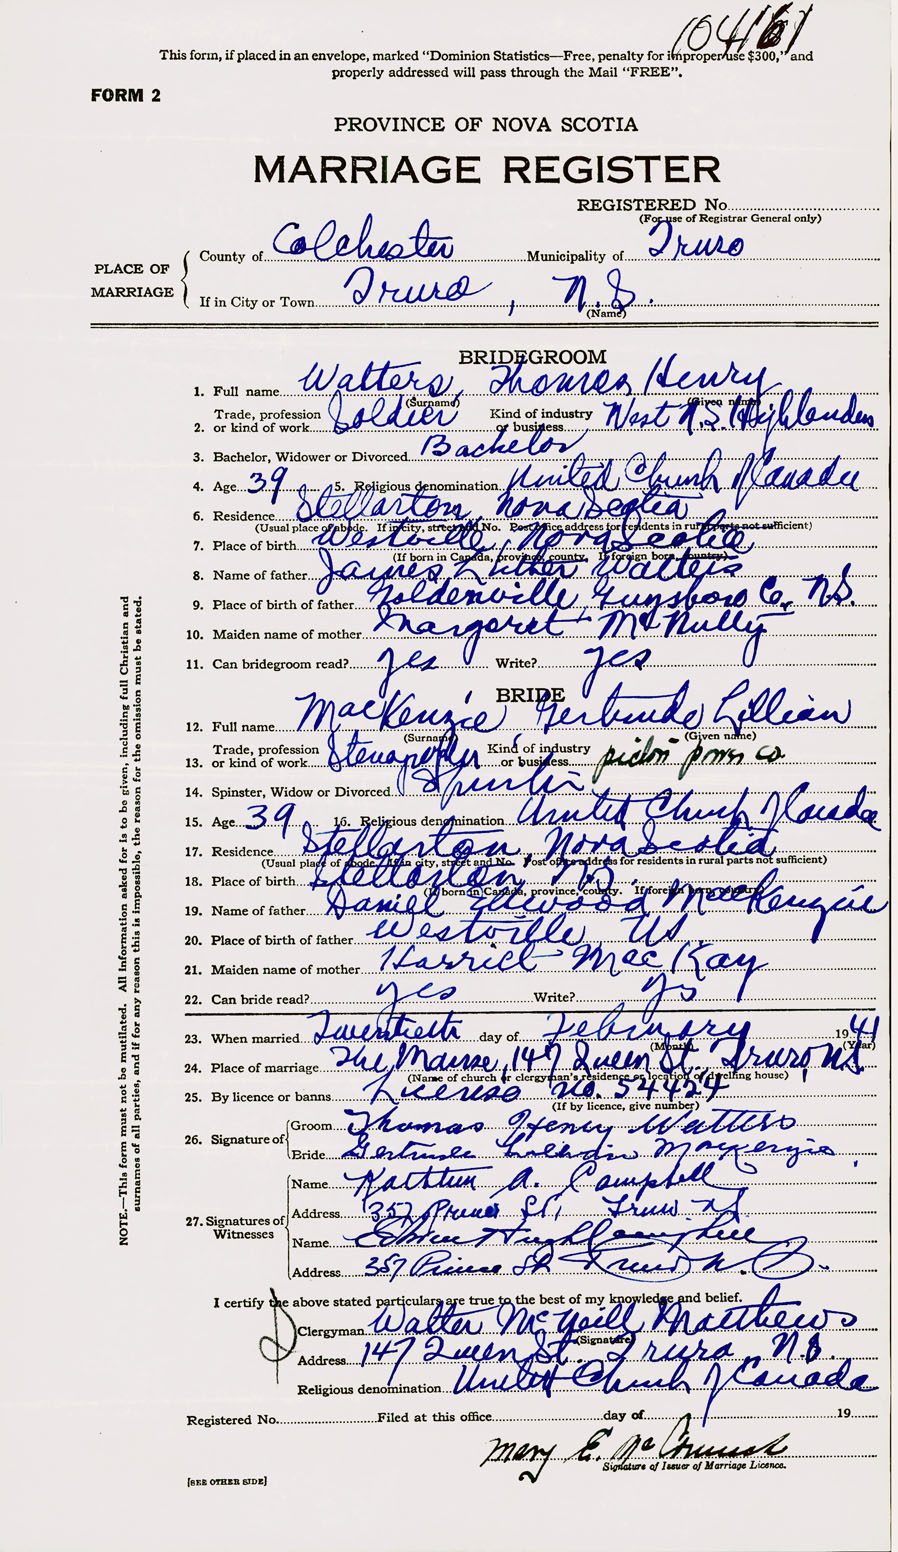 104161
This form, if placed in an envelope, marked “Dominion Statistics—Free, penalty for improper use $300,” and
properly addressed will pass through the Mail “FREE”.
FORM 2
PROVINCE OF NOVA SCOTIA
MARRIAGE REGISTER
REGISTERED No.
(For use of Registrar General only)
PLACE OF MARRIAGE
County of Colchester Municipality of Truro
If in City or Town Truro, N.S.
(Name)
BRIDEGROOM
1. Full name Watters, Thomas Henry
(Surname) (Given name)
2. Trade, profession or kind of work Soldier Kind of industry or business West N.S. Highlanders
3. Bachelor, Widower or Divorced Bachelor
4. Age 39 5. Religious denomination United Church of Canada
6. Residence Stellarton, Nova Scotia
(Usual place of abode. If in city, street and No. Post office address for residents in rural parts not sufficient)
7. Place of birth Westville, Nova Scotia
(If born in Canada, province, county. If foreign born, country)
8. Name of father James Luther Watters
9. Place of birth of father Goldenville, Guysboro Co., N.S.
10. Maiden name of mother Margaret McNulty
11. Can bridegroom read? yes Write? yes
BRIDE
12. Full name MacKenzie Gertrude Lillian
(Surname) (Given name)
13. Trade, profession or kind of work Stenographer Kind of industry or business pictou power co
14. Spinster, Widow or Divorced Spinster
15. Age 39 16. Religious denomination United Church of Canada
17. Residence Stellarton, Nova Scotia
(Usual place of abode. If in city, street and No. Post office address for residents in rural parts not sufficient)
18. Place of birth Stellarton N.S.
(If born in Canada, province, county. If foreign born, country)
19. Name of father Daniel Ellwood MacKenzie
20. Place of birth of father Westville NS
21. Maiden name of mother Harriet MacKay
22. Can bride read? yes Write? yes
23. When married Twentieth day of February 1941
(Month) (Year)
24. Place of marriage The Manse, 147 Queen St. Truro, N.S.
(Name of church or clergyman's residence or location of dwelling house)
25. By licence or banns License no. 54424
(If by licence, give number)
26. Signature of Groom Thomas Henry Watters
Bride Gertrude Lillian MacKenzie
27. Signatures of Witnesses
Name Kathleen A. Campbell
Address 357 Prince St., Truro N.S.
Name Hugh Campbell
Address 357 Prince St. Truro N.S.
I certify the above stated particulars are true to the best of my knowledge and belief.
Clergyman Walter McNeill Matthews
(Signature)
Address 147 Queen St. Truro, N.S.
Religious denomination United Church of Canada
Registered No. Filed at this office day of 19
Mary E. McCormack
Signature of Issuer of Marriage Licence.
[SEE OTHER SIDE]
NOTE.—This form must not be mutilated. All information asked for is to be given, including full Christian and
surnames of all parties, and if for any reason this is impossible, the reason for the omission must be stated.